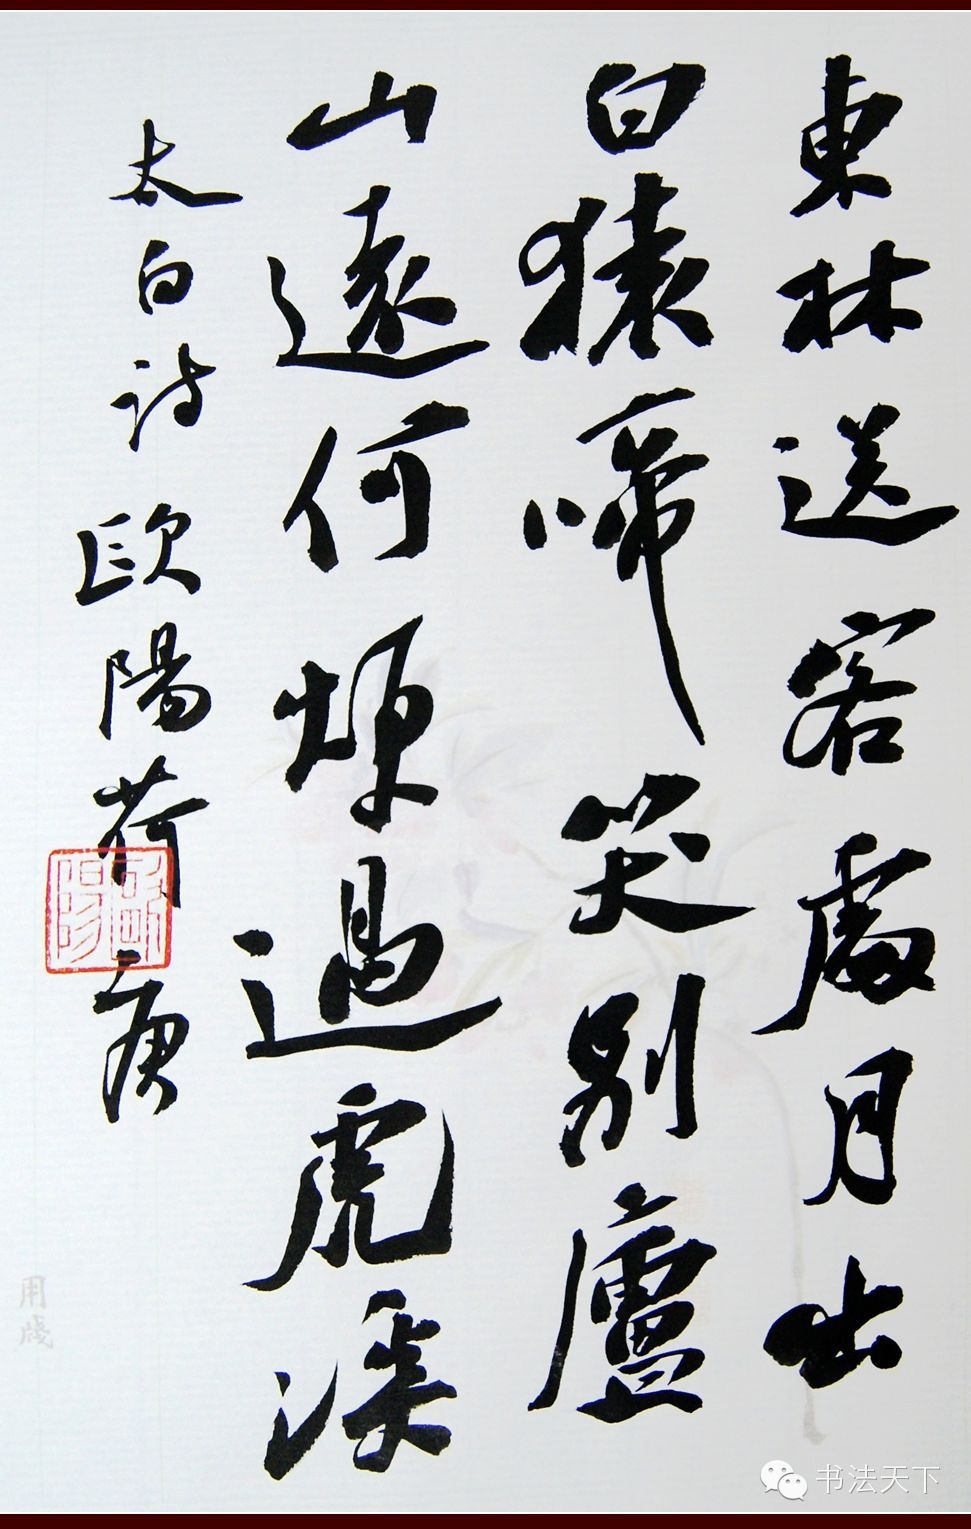 東林送客處月出
白猿啼笑別廬
山遠何煩過虎溪
太白詩歐陽荷庚
歐陽
用箋
书法天下